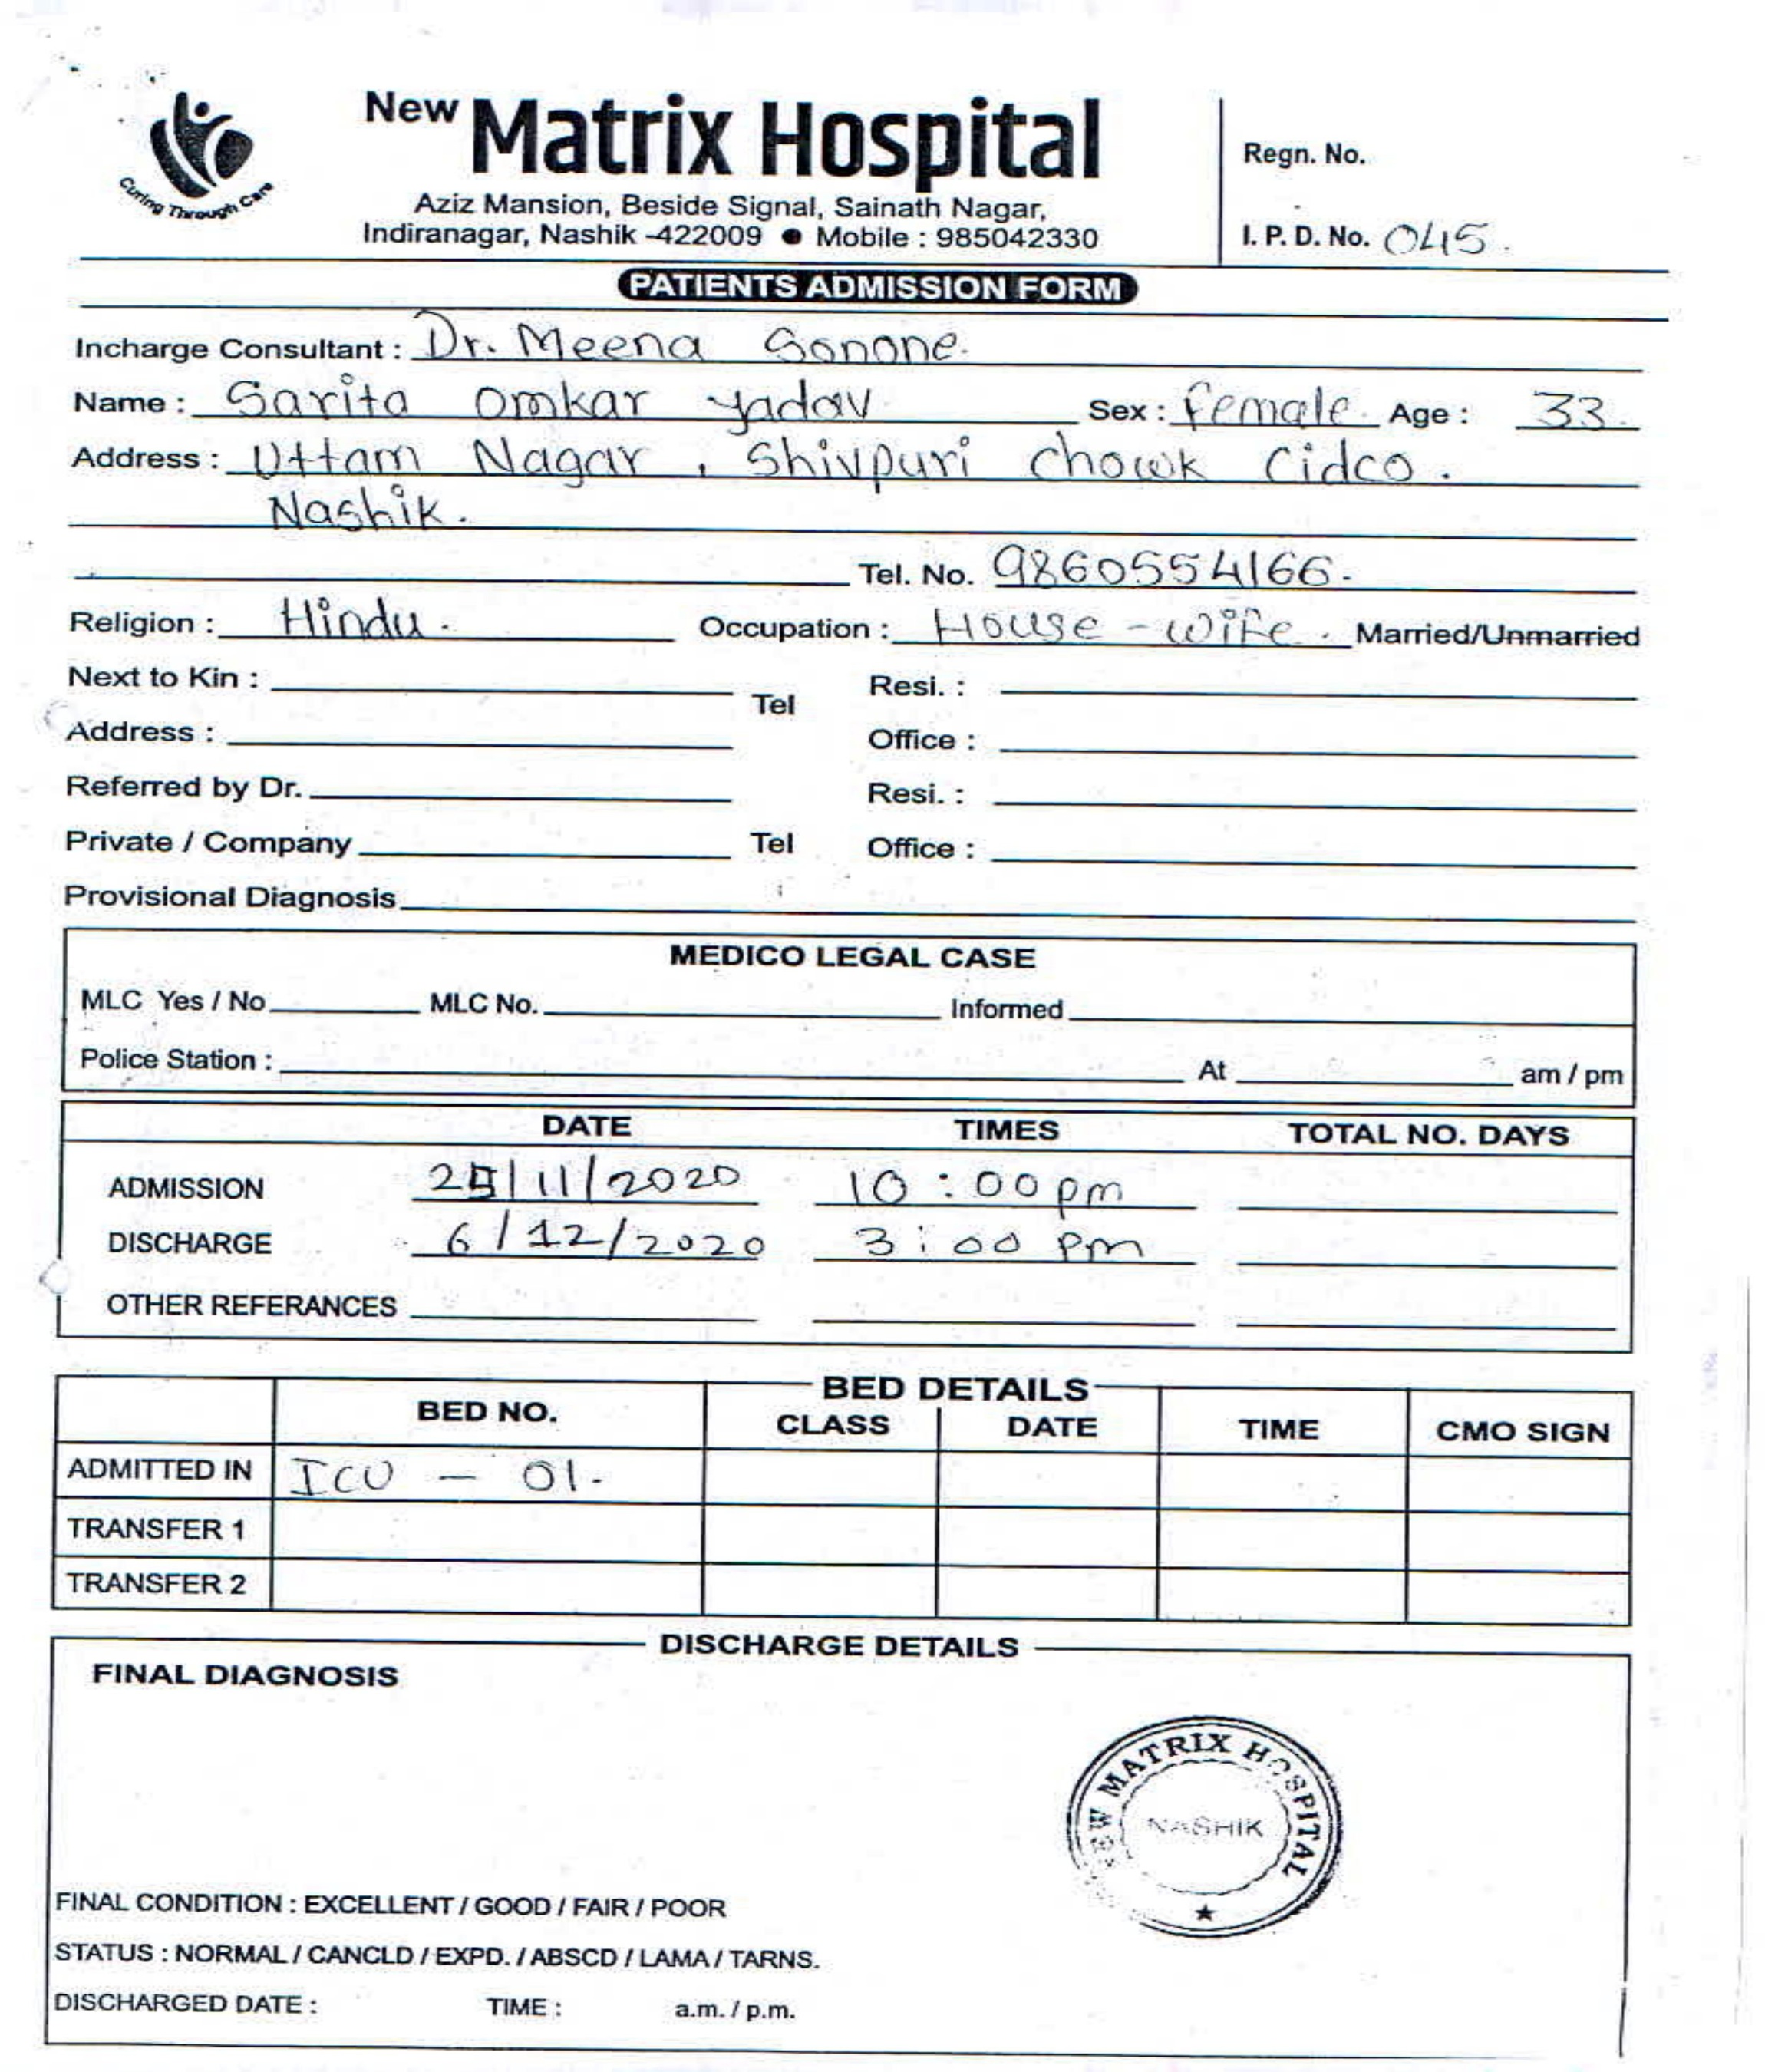 New Matrix Hospital
Curing Through Care
Aziz Mansion, Beside Signal, Sainath Nagar,
Indiranagar, Nashik -422009 ● Mobile : 985042330
Regn. No.
I. P. D. No. 045.
PATIENTS ADMISSION FORM
Incharge Consultant : Dr. Meena Sonone.
Name : Sarita Omkar Yadav Sex : Female. Age : 33.
Address : Uttam Nagar, Shivpuri Chowk Cidco.
Nashik.
Tel. No. 9860554166.
Religion : Hindu. Occupation : House-wife. Married/Unmarried
Next to Kin : Tel Resi. :
Address : Office :
Referred by Dr. Resi. :
Private / Company Tel Office :
Provisional Diagnosis
MEDICO LEGAL CASE
MLC Yes / No MLC No. Informed
Police Station : At am / pm
DATE TIMES TOTAL NO. DAYS
ADMISSION 25/11/2020 10:00 pm
DISCHARGE 6/12/2020 3:00 pm
OTHER REFERANCES
BED DETAILS
BED NO. CLASS DATE TIME CMO SIGN
ADMITTED IN ICU - 01.
TRANSFER 1
TRANSFER 2
DISCHARGE DETAILS
FINAL DIAGNOSIS
NEW MATRIX HOSPITAL
NASHIK
FINAL CONDITION : EXCELLENT / GOOD / FAIR / POOR
STATUS : NORMAL / CANCLD / EXPD. / ABSCD / LAMA / TARNS.
DISCHARGED DATE : TIME : a.m. / p.m.